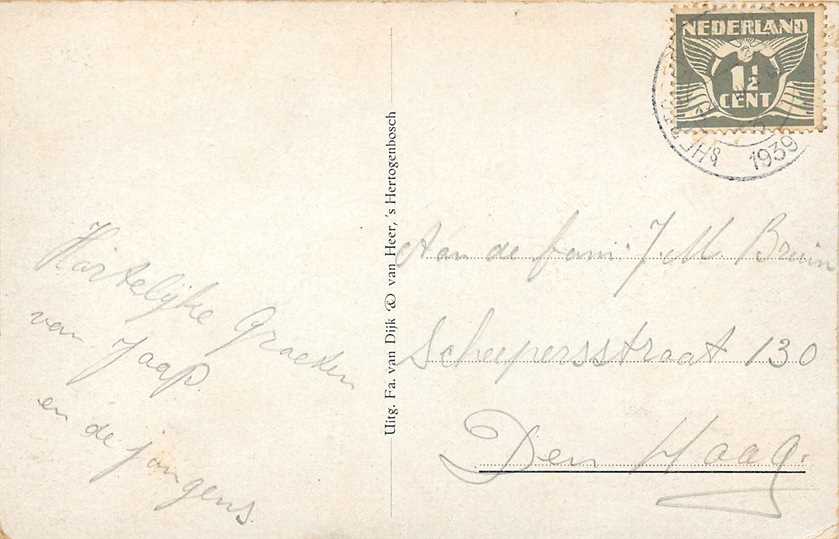 NEDERLAND
1½
CENT
1939
Hartelijke Groeten
van Jaap
en de jongens.
Uitg. Fa. van Dijk & van Heer, 's Hertogenbosch
Aan de fam: J. M. Bruin
Scheepersstraat 130
Den Haag.